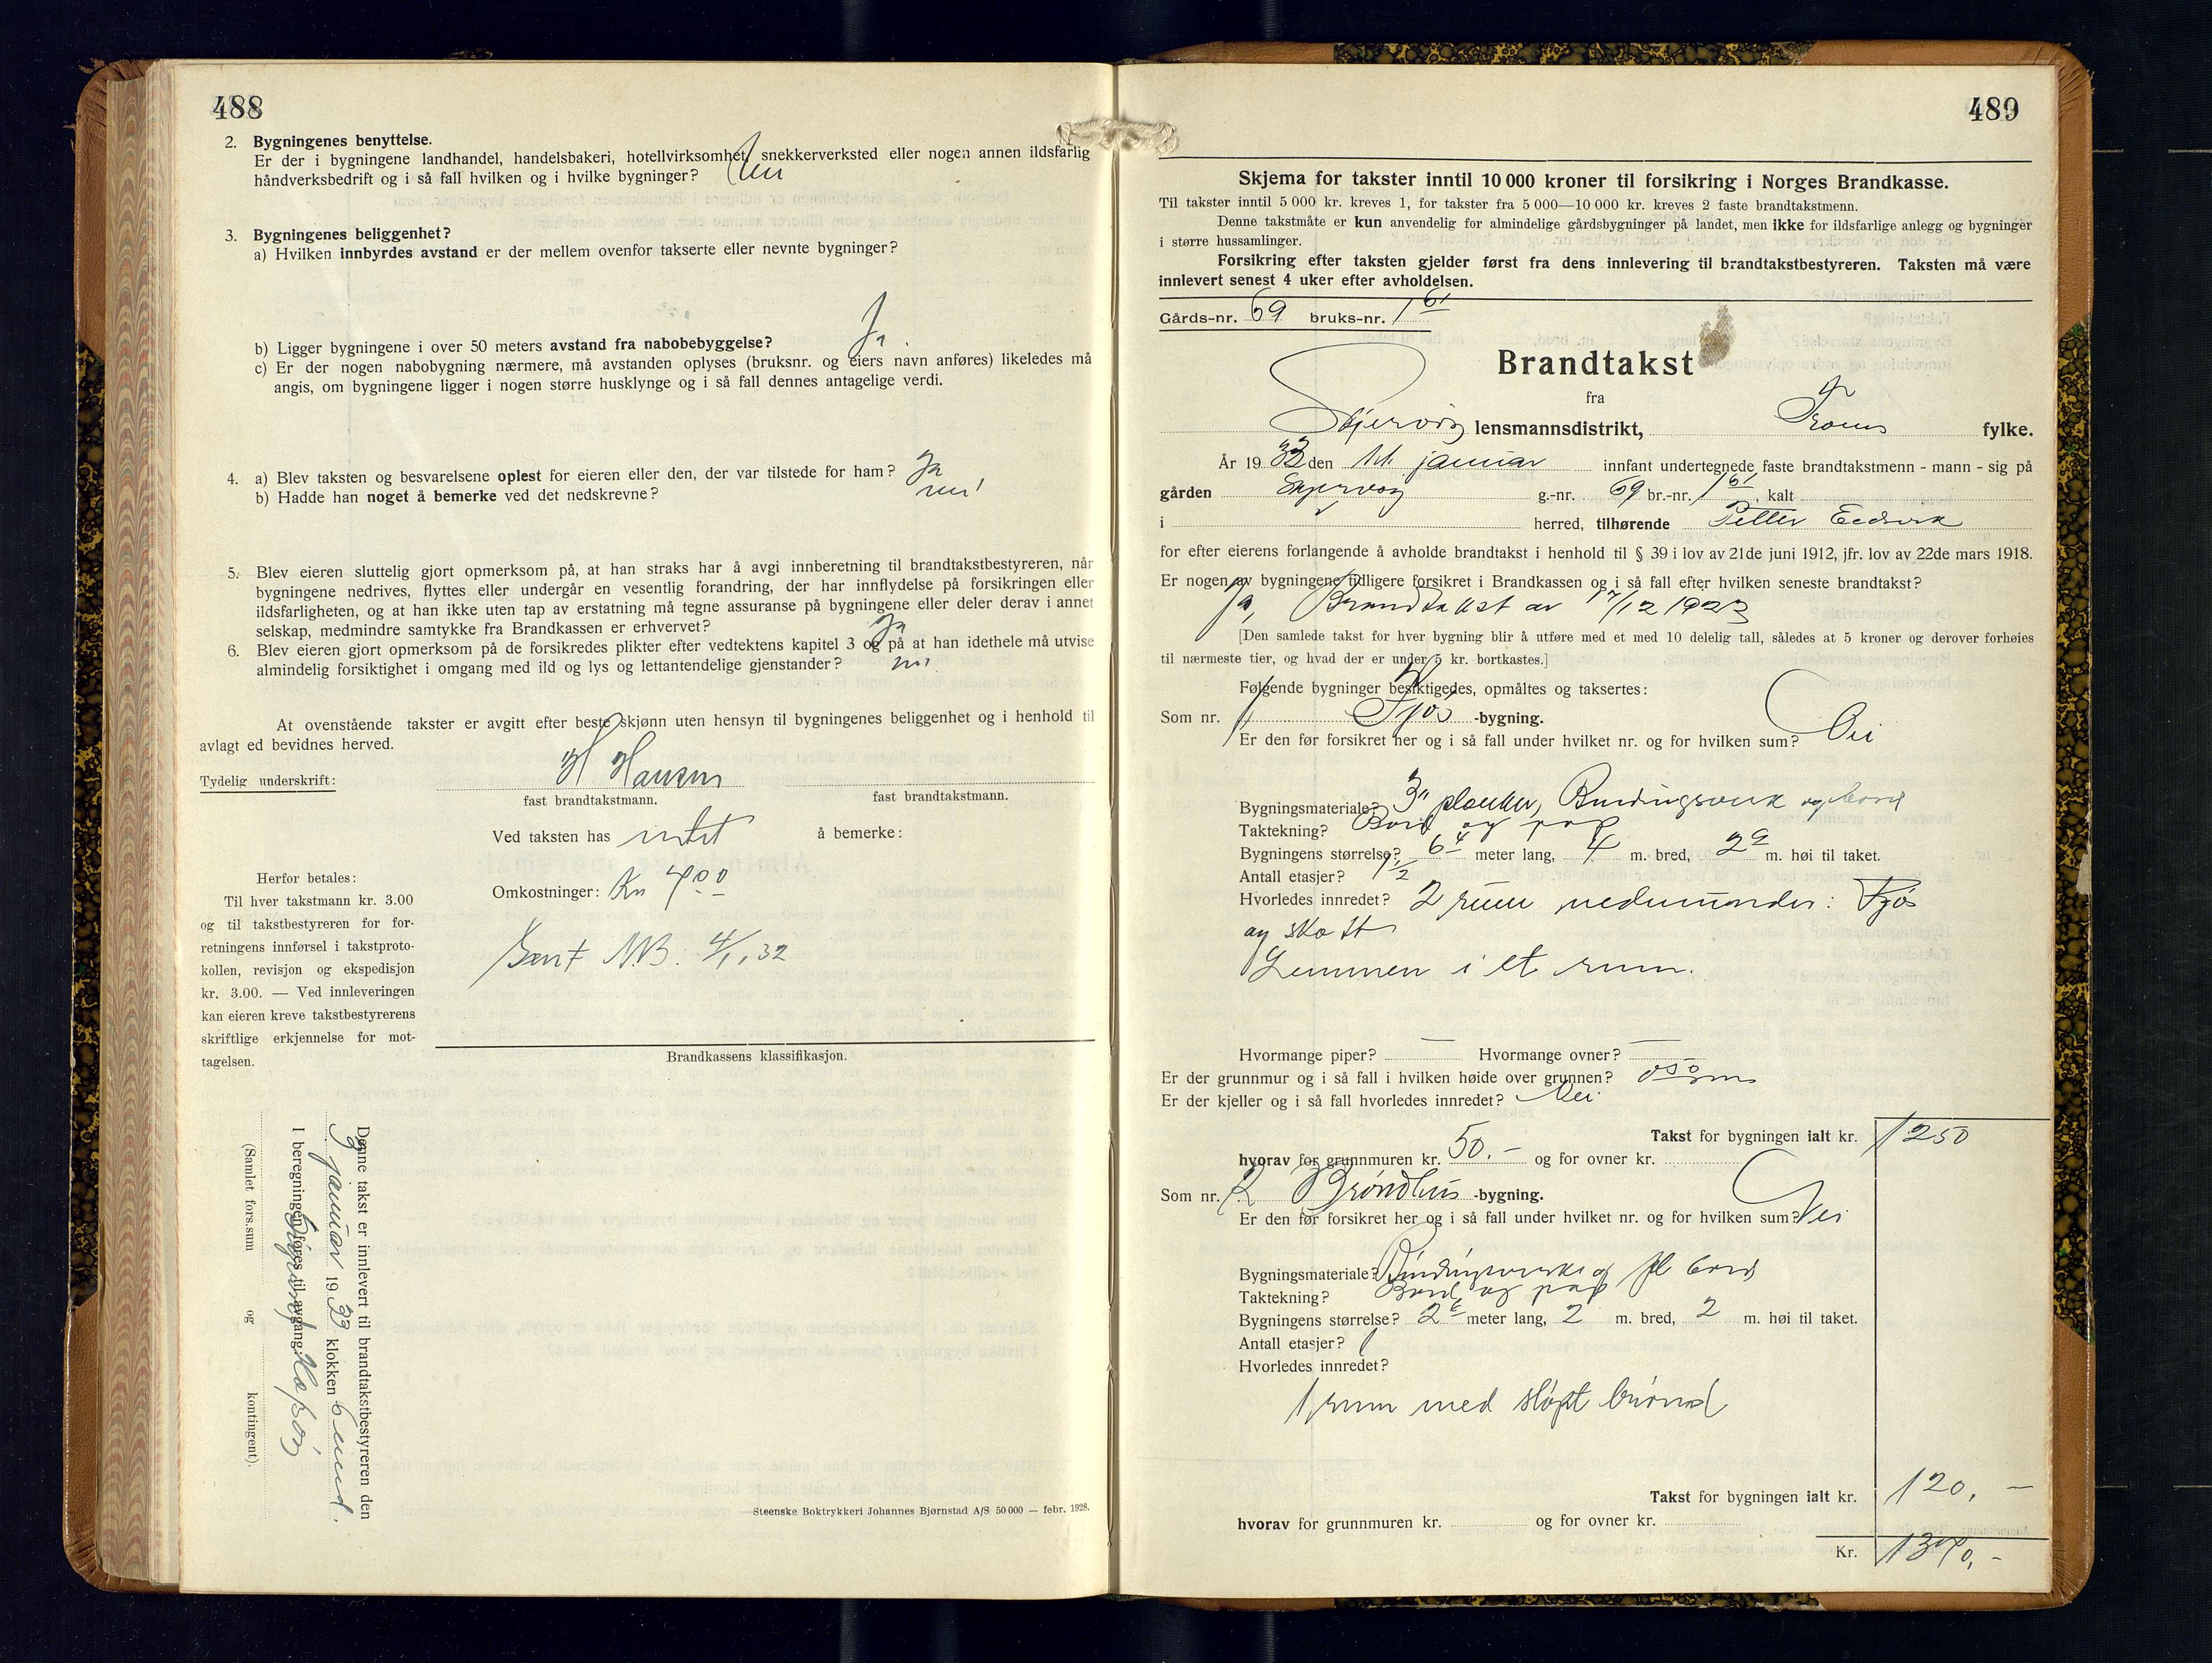 488
2. Bygningenes benyttelse.
Er der i bygningene landhandel, handelsbakeri, hotellvirksomhet, snekkerverksted eller nogen annen ildsfarlig
håndverksbedrift og i så fall hvilken og i hvilke bygninger? Nei
3. Bygningenes beliggenhet?
a) Hvilken innbyrdes avstand er der mellem ovenfor takserte eller nevnte bygninger?
b) Ligger bygningene i over 50 meters avstand fra nabobebyggelse? Ja.
c) Er der nogen nabobygning nærmere, må avstanden oplyses (bruksnr. og eiers navn anføres) likeledes må
angis, om bygningene ligger i nogen større husklynge og i så fall dennes antagelige verdi.
4. a) Blev taksten og besvarelsene oplest for eieren eller den, der var tilstede for ham? Ja
b) Hadde han noget å bemerke ved det nedskrevne? nei
5. Blev eieren sluttelig gjort opmerksom på, at han straks har å avgi innberetning til brandtakstbestyreren, når
bygningene nedrives, flyttes eller undergår en vesentlig forandring, der har innflydelse på forsikringen eller
ildsfarligheten, og at han ikke uten tap av erstatning må tegne assuranse på bygningene eller deler derav i annet
selskap, medmindre samtykke fra Brandkassen er erhvervet? Ja
6. Blev eieren gjort opmerksom på de forsikredes plikter efter vedtektens kapitel 3 og på at han idethele må utvise
almindelig forsiktighet i omgang med ild og lys og lettantendelige gjenstander?
At ovenstående takster er avgitt efter beste skjønn uten hensyn til bygningenes beliggenhet og i henhold til
avlagt ed bevidnes herved.
Tydelig underskrift: H Hansen
fast brandtakstmann. fast brandtakstmann.
Ved taksten has intet å bemerke:
Omkostninger: Kr 4.00
Sent N.B. 4/1.32
Herfor betales:
Til hver takstmann kr. 3.00
og til takstbestyreren for for-
retningens innførsel i takstproto-
kollen, revisjon og ekspedisjon
kr. 3.00. — Ved innleveringen
kan eieren kreve takstbestyrerens
skriftlige erkjennelse for mot-
tagelsen.
Brandkassens klassifikasjon.
Denne takst er innlevert til brandtakstbestyreren den
3 januar 1933 klokken 6 emd.
I beregningen føres til avgang:
(Samlet fors.sum og kontingent).
Steenske Boktrykkeri Johannes Bjørnstad A/S 50 000 — febr. 1928.
489
Skjema for takster inntil 10 000 kroner til forsikring i Norges Brandkasse.
Til takster inntil 5 000 kr. kreves 1, for takster fra 5 000—10 000 kr. kreves 2 faste brandtakstmenn.
Denne takstmåte er kun anvendelig for almindelige gårdsbygninger på landet, men ikke for ildsfarlige anlegg og bygninger
i større hussamlinger.
Forsikring efter taksten gjelder først fra dens innlevering til brandtakstbestyreren. Taksten må være
innlevert senest 4 uker efter avholdelsen.
Gårds-nr. 69 bruks-nr. 1 61
Brandtakst
fra
Skjervøy lensmannsdistrikt, Troms fylke.
År 1933 den januar innfant undertegnede faste brandtakstmenn - mann - sig på
gården Skjervøy g.-nr. 69 br.-nr. 1 61, kalt
i herred, tilhørende Petter
for efter eierens forlangende å avholde brandtakst i henhold til § 39 i lov av 21de juni 1912, jfr. lov av 22de mars 1918.
Er nogen av bygningene tidligere forsikret i Brandkassen og i så fall efter hvilken seneste brandtakst?
Ja, Brandtakst av 17/12 1923
[Den samlede takst for hver bygning blir å utføre med et med 10 delelig tall, således at 5 kroner og derover forhøies
til nærmeste tier, og hvad der er under 5 kr. bortkastes.]
Følgende bygninger besiktigedes, opmåltes og taksertes:
Som nr. 1 Fjøs -bygning.
Er den før forsikret her og i så fall under hvilket nr. og for hvilken sum? Nei
Bygningsmateriale? 3" planker, Bindingsverk og bord
Taktekning? Bord og pap
Bygningens størrelse? 6 4 meter lang, 4 m. bred, 2 9 m. høi til taket.
Antall etasjer? 1½
Hvorledes innredet? 2 rum nedenunder: Fjøs
og
Lemmen i et rum.
Hvormange piper? — Hvormange ovner? —
Er der grunnmur og i så fall i hvilken høide over grunnen? 0 50 m
Er der kjeller og i så fall hvorledes innredet? Nei
Takst for bygningen ialt kr. 1250
hvorav for grunnmuren kr. 50.- og for ovner kr.
Som nr. 2 Brøndhus -bygning.
Er den før forsikret her og i så fall under hvilket nr. og for hvilken sum? Nei
Bygningsmateriale? Bindingsverk og pl bord
Taktekning? Bord og pap
Bygningens størrelse? 2 6 meter lang, 2 m. bred, 2 m. høi til taket.
Antall etasjer? 1
Hvorledes innredet?
1 rum med støpt brønd
Takst for bygningen ialt kr. 120,-
hvorav for grunnmuren kr. og for ovner kr.
Kr. 1370,-